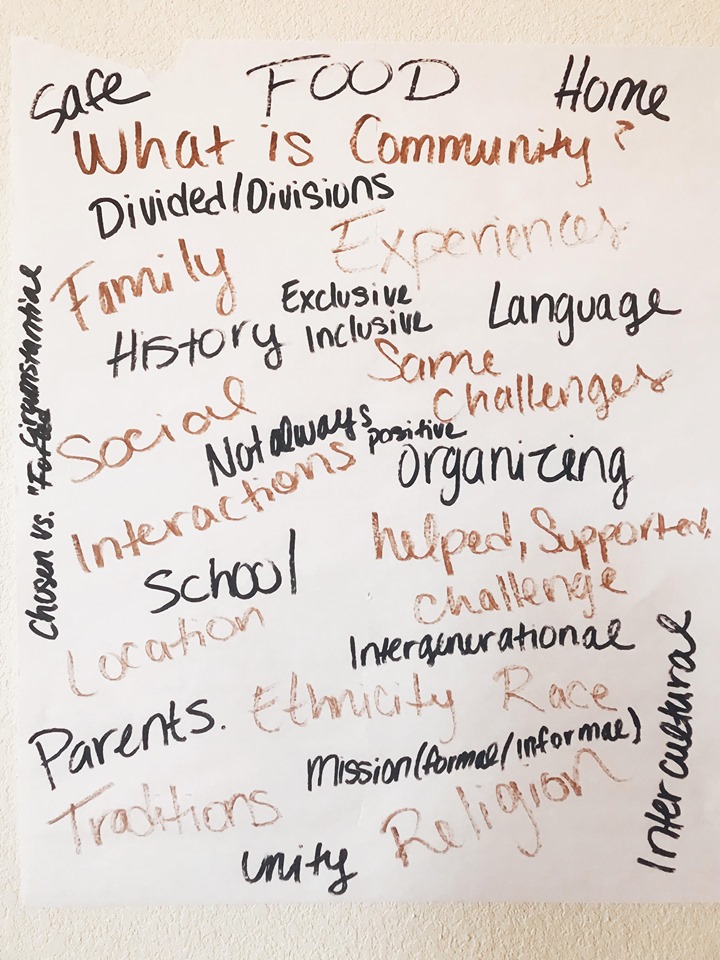 Safe FOOD Home
What is Community?
Divided/Divisions
Family Experiences
Exclusive
History Inclusive Language
Same
Challenges
Social
Not always positive
Interactions Organizing
helped, Supported,
challenge
School
Location
Intergenerational
Parents. Ethnicity Race
Mission (formal/informal)
Traditions Religion
Unity
Chosen vs. "Forced
Circumstantial
Intercultural